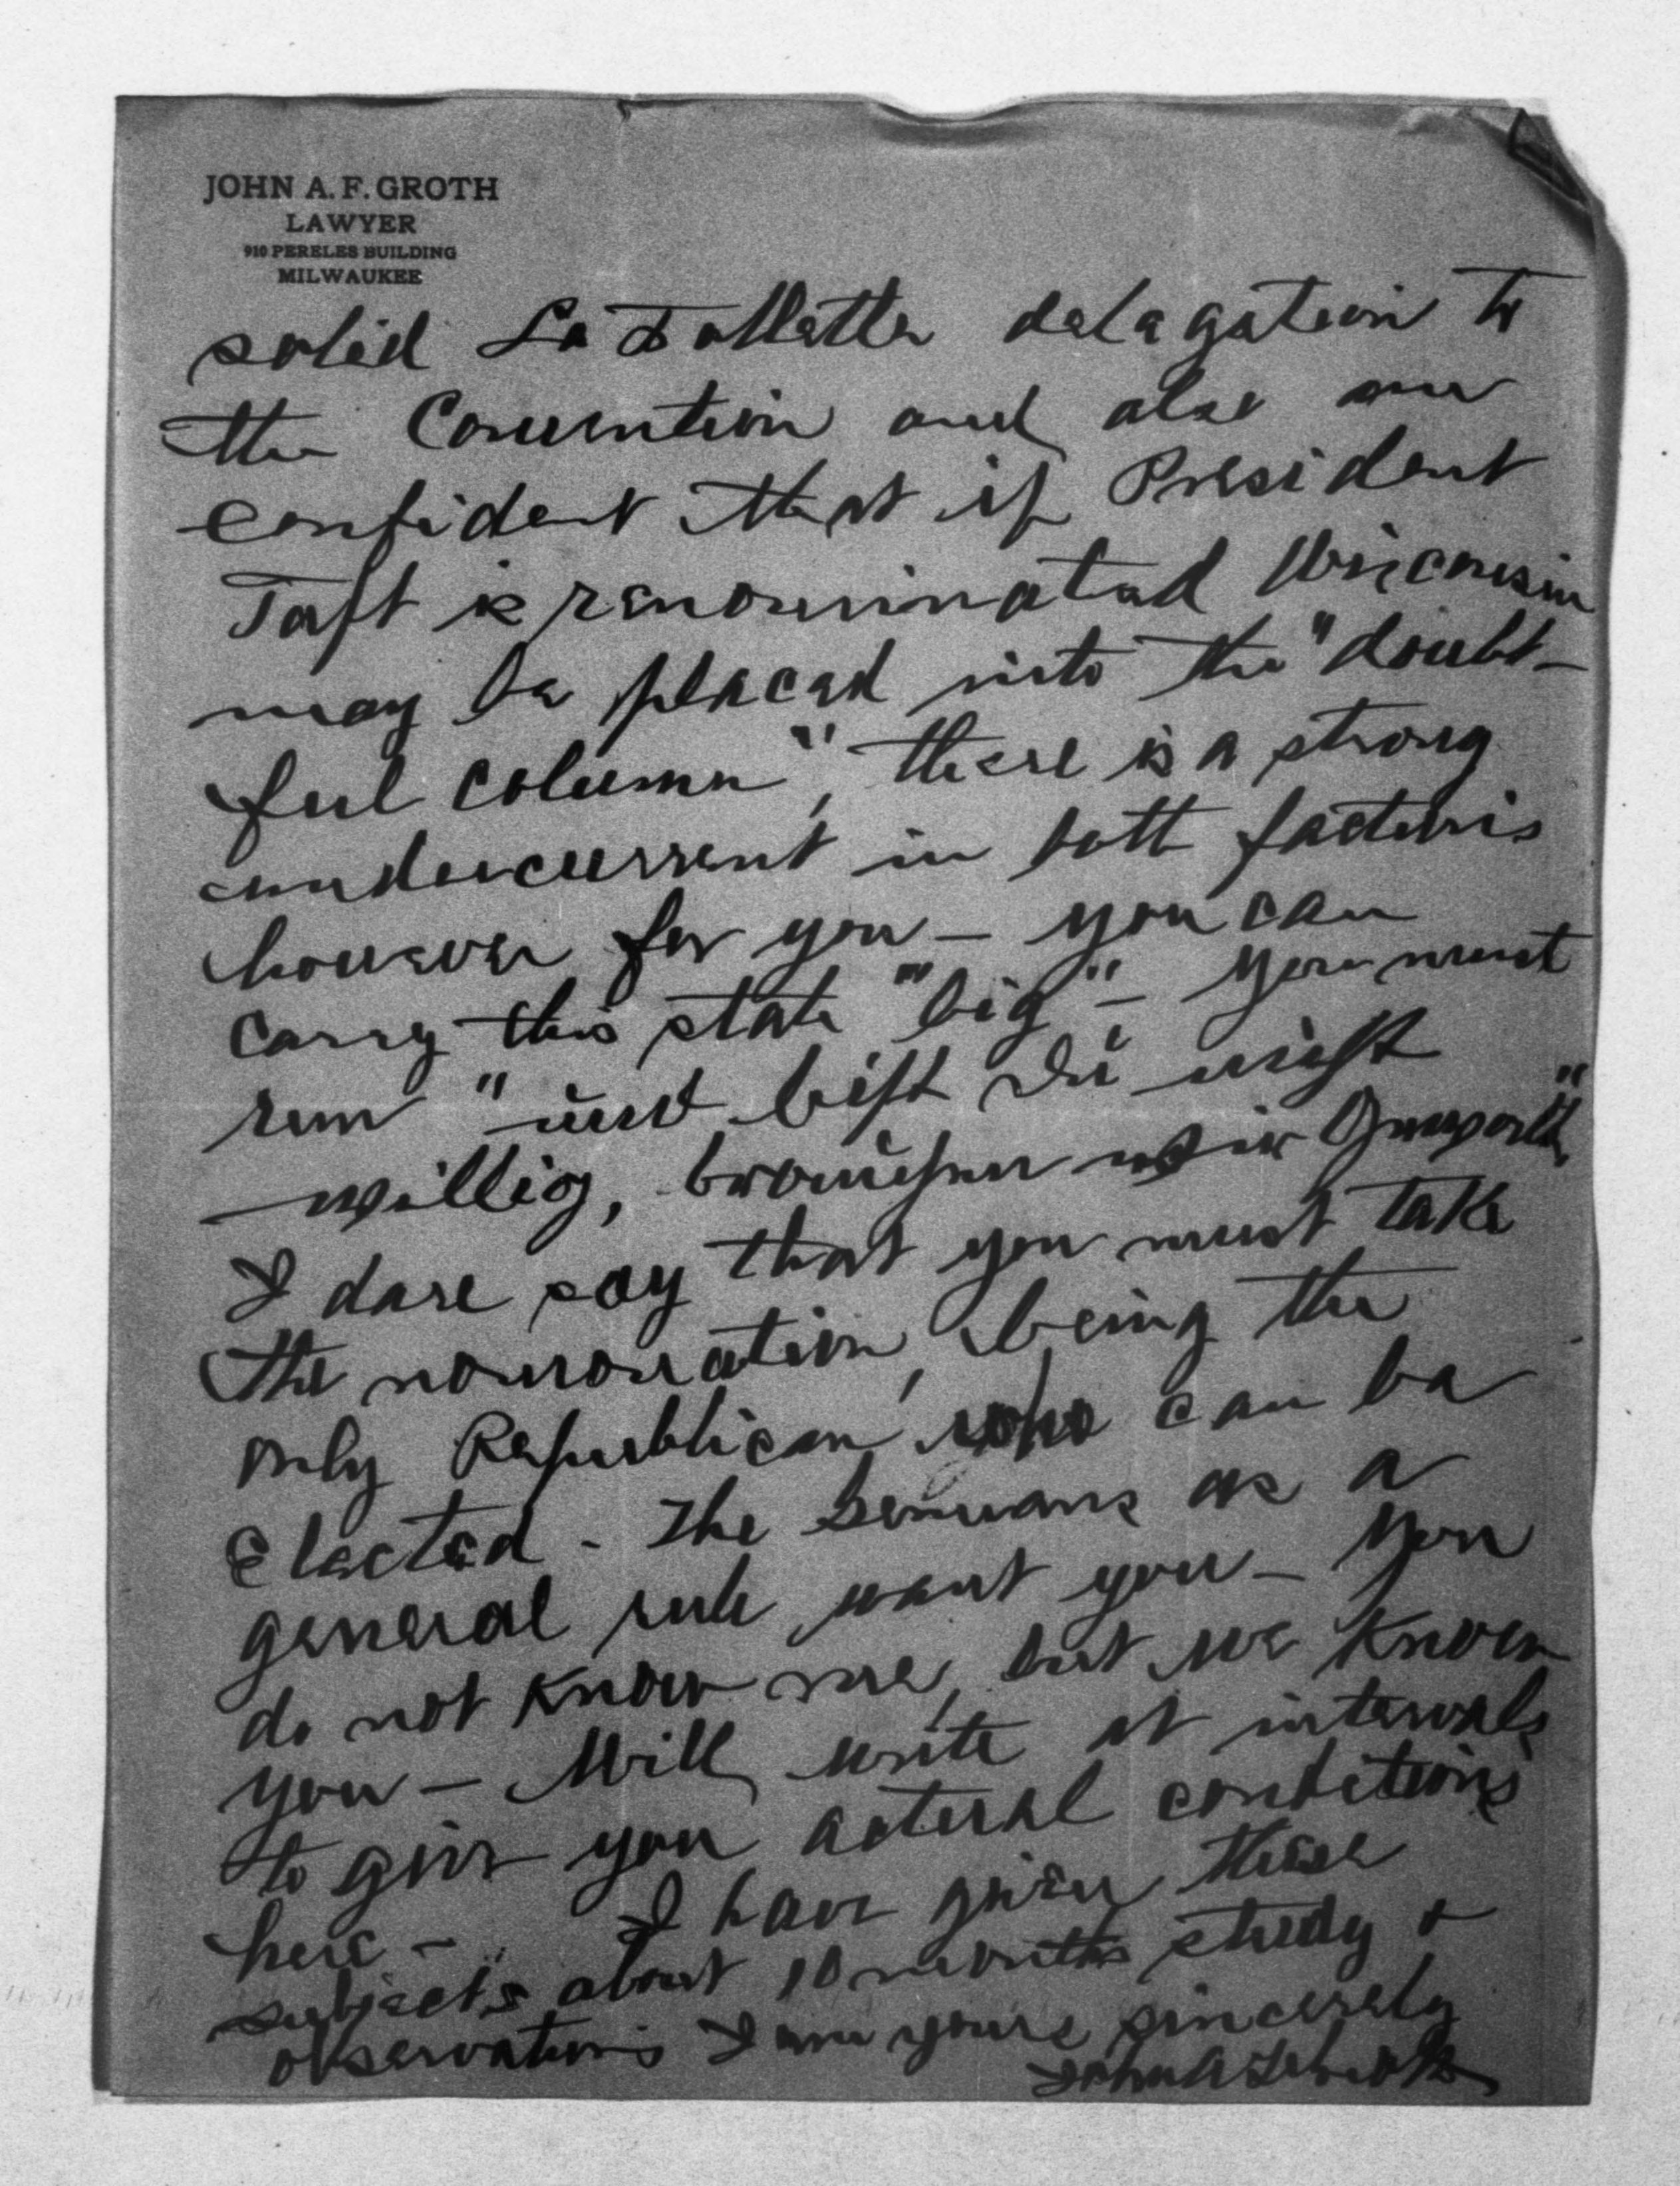 JOHN A. F. GROTH
LAWYER
910 PERELES BUILDING
MILWAUKEE
solid La Follette delegation to
the Convention and also am
confident that if President
Taft is renominated Wisconsin
may be placed into the "doubt-
ful column", there is a strong
undercurrent in both factions
however for you — you can
carry this state "big" — you must
run "und bist Du nicht
willig, brauchen wir Gewalt",
I dare say that you must take
the nomination, being the
only Republican who can be
elected - The Germans as a
general rule want you — You
do not know me, but we know
you — Will write at intervals
to give you actual conditions
here — I have given these
subjects about 10 months study &
observations I am yours sincerely
John A F Groth